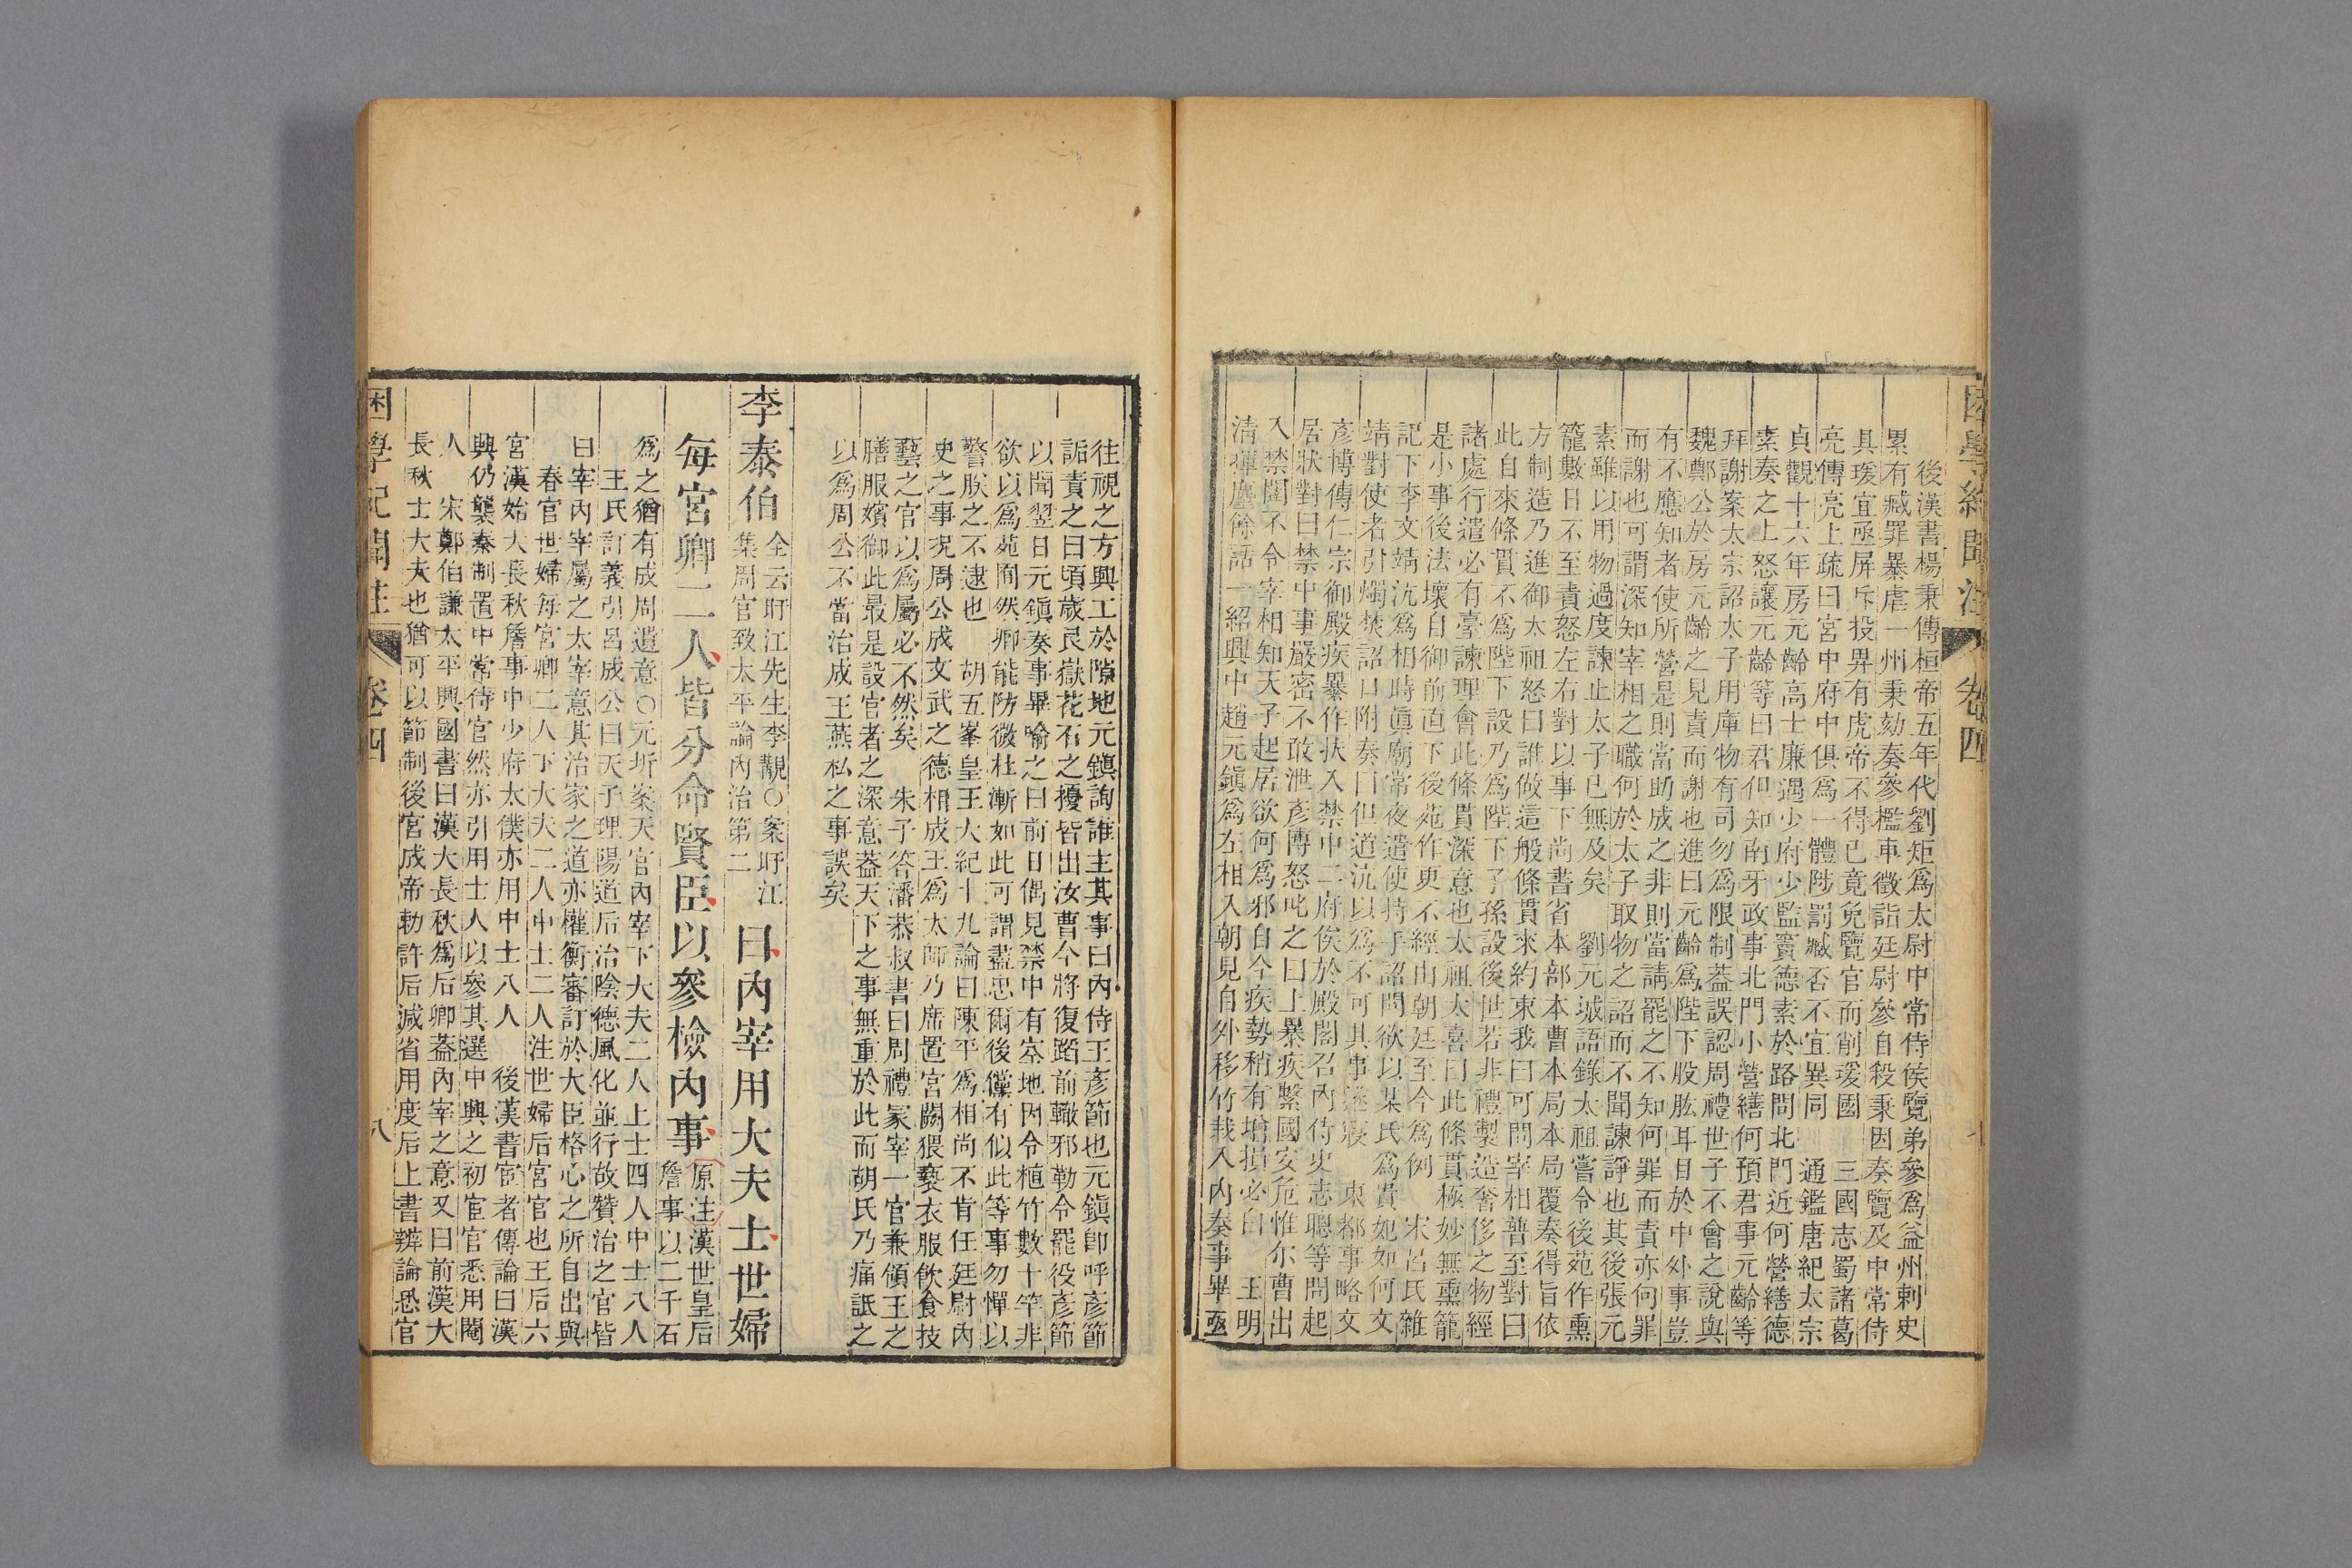 困學紀聞注 卷四
後漢書楊秉傳桓帝五年代劉矩爲太尉中常侍侯覽弟參爲益州刺史
累有臧罪暴虐一州秉劾奏參檻車徵詣廷尉參自殺秉因奏覽及中常侍
具瑗宜亟屏斥投畀有虎帝不得已竟免覽官而削瑗國 三國志蜀諸葛
亮傳亮上疏曰宮中府中俱爲一體陟罰臧否不宜異同 通鑑唐紀太宗
貞觀十六年房元齡高士廉遇少府少監竇德素於路問北門近何營繕德
素奏之上怒讓元齡等曰君但知南牙政事北門小營繕何預君事元齡等
拜謝案太宗詔太子用庫物有司勿爲限制葢誤認周禮世子不會之說與
魏鄭公於房元齡之見責而謝也進曰元齡爲陛下股肱耳目於中外事豈
有不應知者使所營是則當助成之非則當請罷之不知何罪而責亦何罪
而謝也可謂深知宰相之職何於太子取物之詔而不聞諫諍也其後張元
素雖以用物過度諫止太子已無及矣 劉元城語錄太祖嘗令後苑作熏
籠數日不至責怒左右對以事下尚書省本部本曹本局本局覆奏得旨依
方制造乃進御太祖怒曰誰做這般條貫來約束我曰可問宰相普至對曰
此自來條貫不爲陛下設乃爲陛下子孫設後世若非禮製造奢侈之物經
諸處行遣必有臺諫理會此條貫深意也太祖大喜曰此條貫極妙無熏籠
是小事後法壞自御前直下後苑作更不經由朝廷至今爲例 宋呂氏雜
記下李文靖沆爲相時眞廟常夜遣使持手詔問欲以某氏爲貴妃如何文
靖對使者引燭焚詔口附奏曰但道沆以爲不可其事遂寢 東都事略文
彥博傳仁宗御殿疾暴作扶入禁中二府俟於殿閣召內侍史志聰等問起
居狀對曰禁中事嚴密不敢泄彥博怒叱之曰上暴疾繫國安危惟尔曹出
入禁闥不令宰相知天子起居欲何爲邪自今疾勢稍有增損必白 王明
清揮麈餘話一紹興中趙元鎭爲左相入朝見自外移竹栽入內奏事畢亟
往視之方興工於隙地元鎭詢誰主其事曰內侍王彥節也元鎭卽呼彥節
詬責之曰頃歲艮嶽花石之擾皆出汝曹今將復蹈前轍邪勒令罷役彥節
以聞翌日元鎭奏事畢喻之曰前日偶見禁中有空地因令植竹數十竿非
欲以爲苑囿然卿能防微杜漸如此可謂盡忠爾後儻有似此等事勿憚以
警朕之不逮也 胡五峯皇王大紀十九論曰陳平爲相尚不肯任廷尉內
史之事況周公成文武之德相成王爲太師乃席置宮闕猥褻衣服飮食技
藝之官以爲屬必不然矣 朱子答潘恭叔書曰周禮冢宰一官兼領王之
膳服嬪御此最是設官者之深意葢天下之事無重於此而胡氏乃痛詆之
以爲周公不當治成王燕私之事誤矣
李泰伯全云盱江先生李覯○案盱江集周官致太平論內治第二曰內宰用大夫士世婦
每宮卿二人皆分命賢臣以參檢內事原注漢世皇后詹事以二千石
爲之猶有成周遺意○元圻案天官內宰下大夫二人上士四人中士八人
王氏訂義引呂成公曰天子理陽道后治陰德風化並行故贊治之官皆
曰宰內宰屬之太宰意其治家之道亦權衡審訂於大臣格心之所自出與
春官世婦每宮卿二人下大夫二人中士二人注世婦后宮官也王后六
宮漢始大長秋詹事中少府太僕亦用中士八人 後漢書宦者傳論曰漢
興仍襲秦制置中常侍官然亦引用士人以參其選中興之初宦官悉用閹
人 宋鄭伯謙太平興國書曰漢大長秋爲后卿葢內宰之意又曰前漢大
長秋士大夫也猶可以節制後宮成帝勅許后減省用度后上書辨論恐官
困學紀聞注 卷四 八